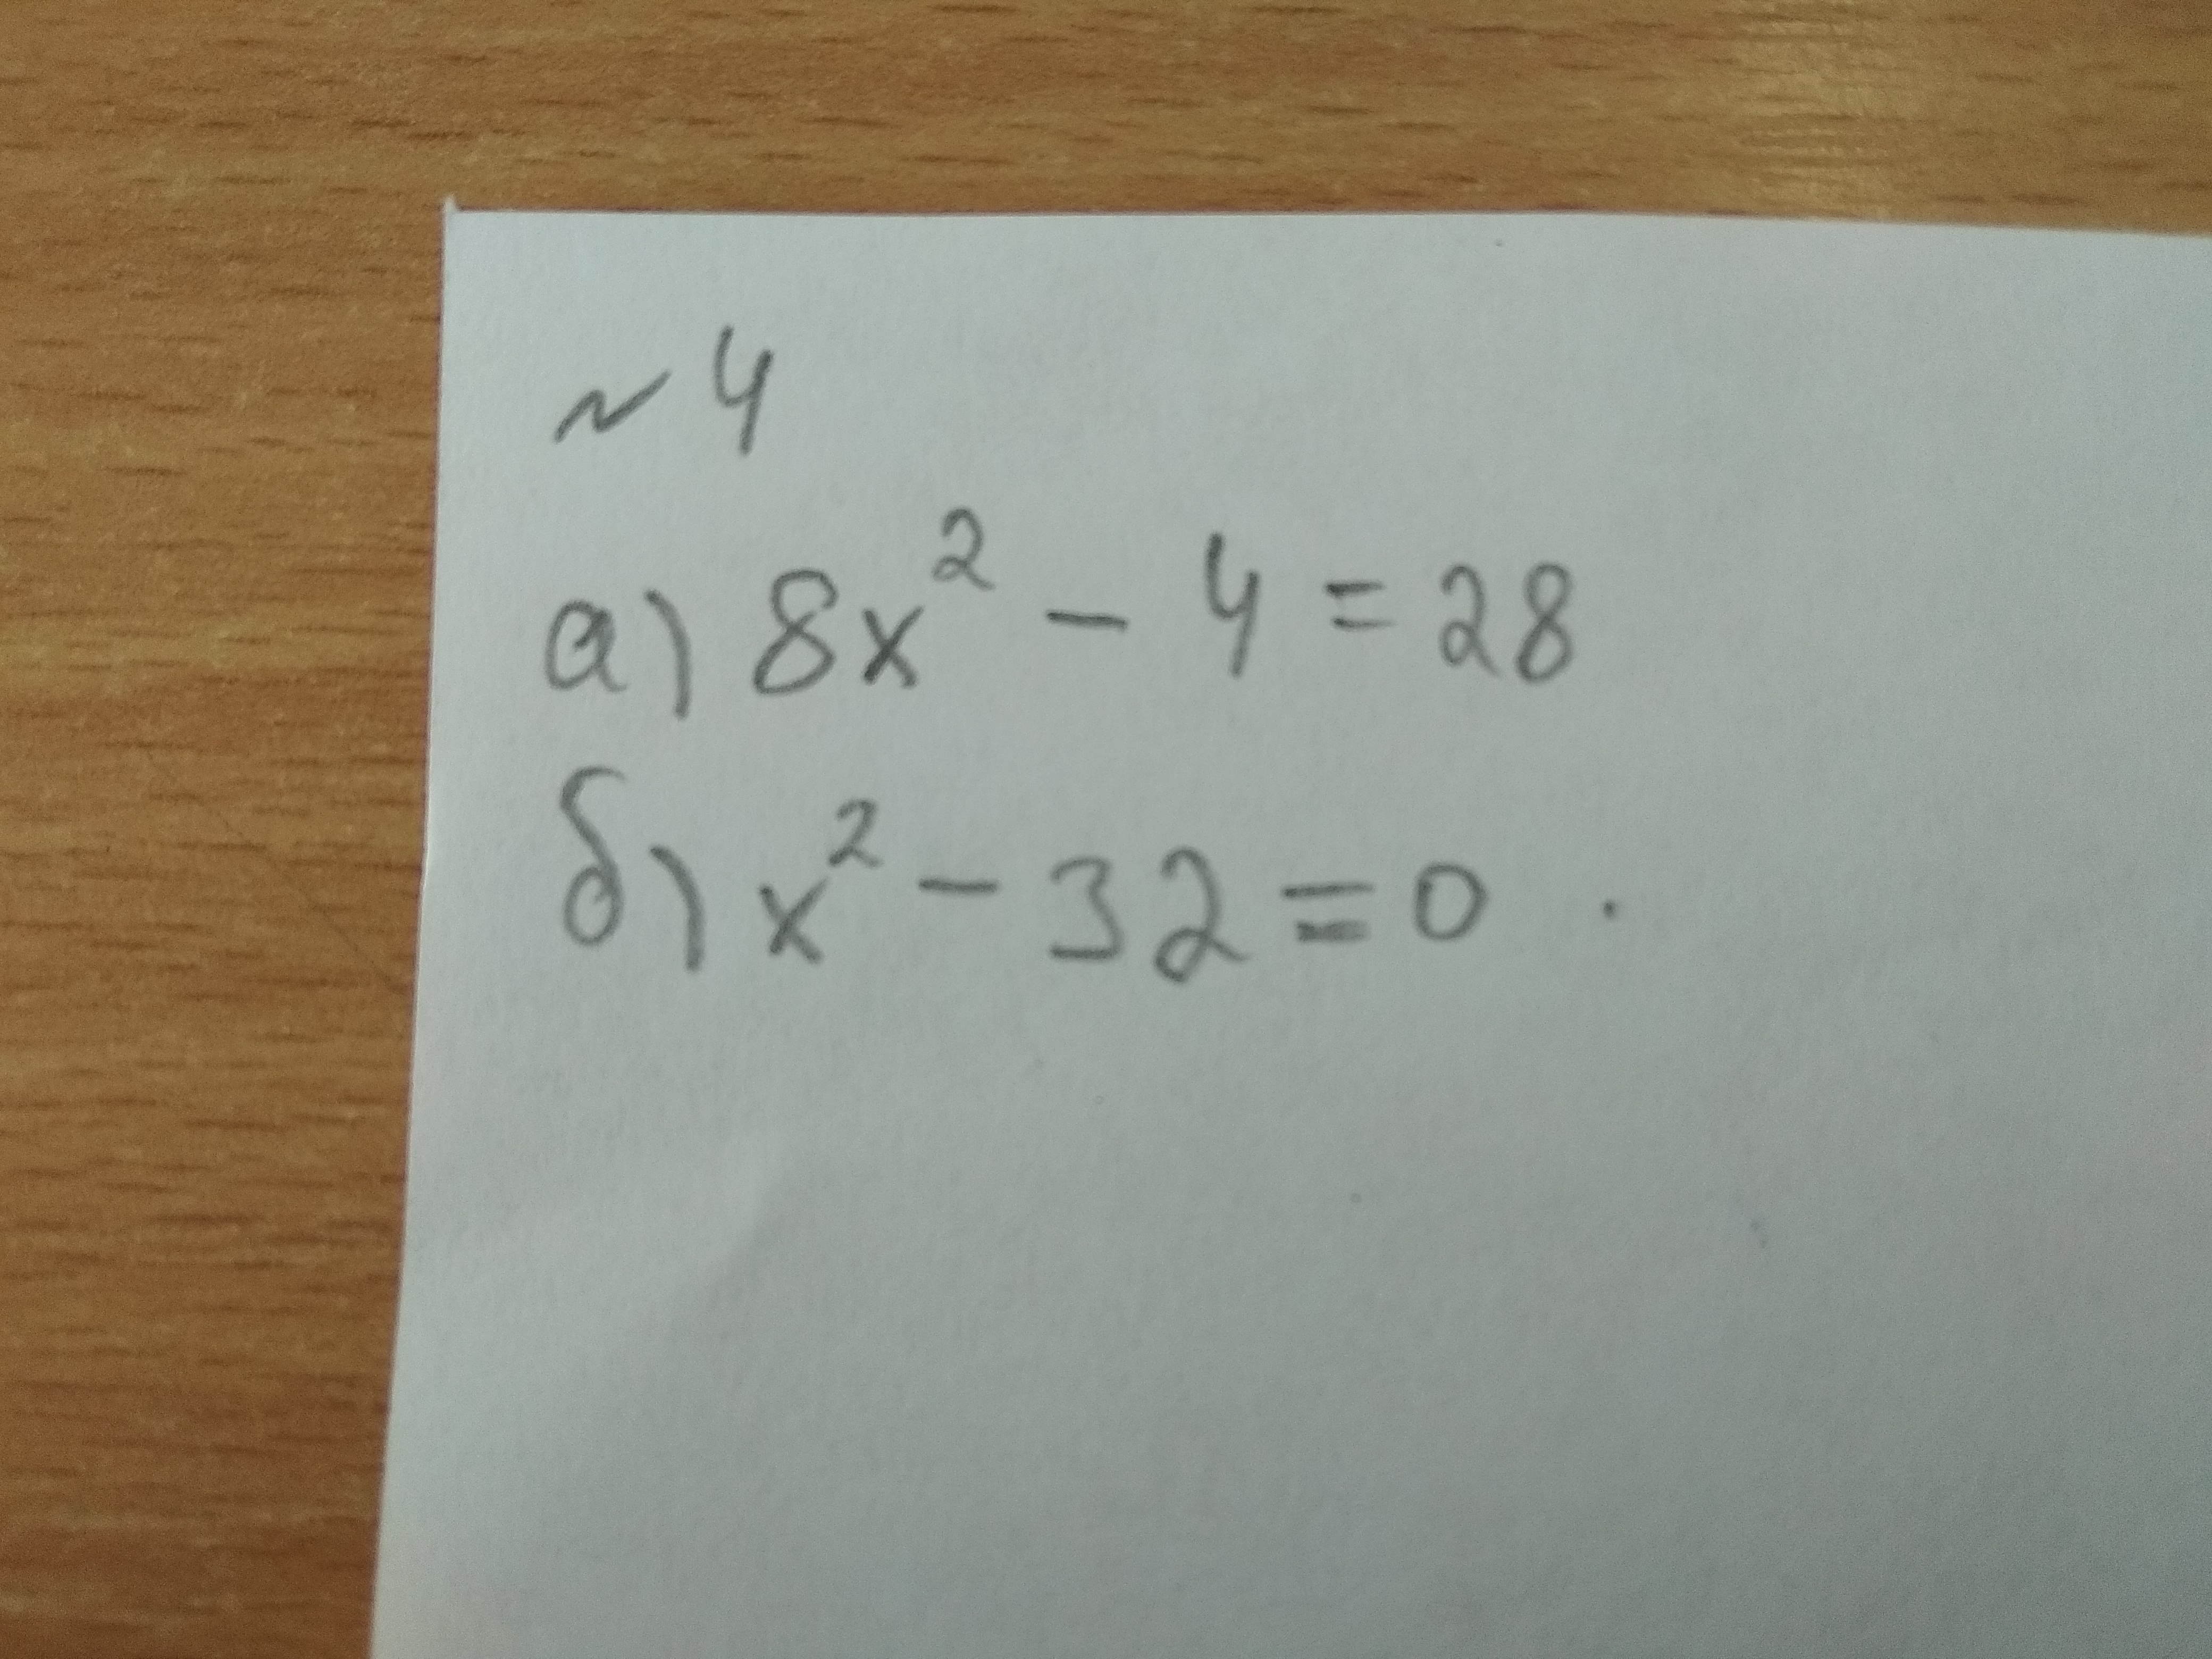 ~ 4
а) 8x² - 4 = 28
б) x² - 32 = 0 .